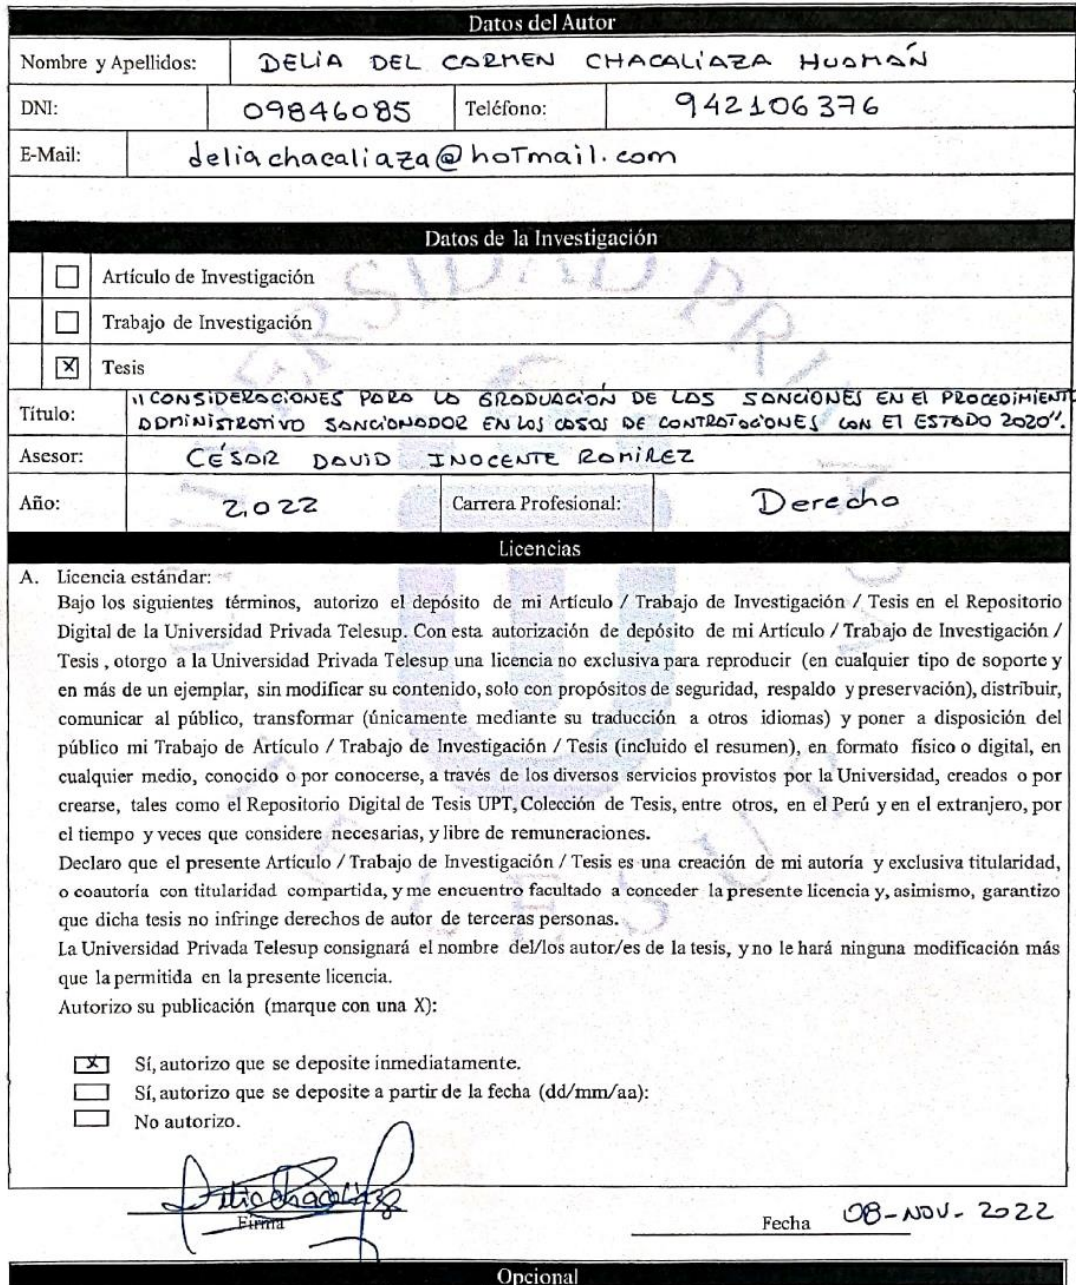 Datos del Autor
Nombre y Apellidos: DELIA DEL CARMEN CHACALIAZA HUAMÁN
DNI: 09846085 Teléfono: 942106376
E-Mail: deliachacaliaza@hotmail.com
Datos de la Investigación
☐ Artículo de Investigación
☐ Trabajo de Investigación
☒ Tesis
Título: "CONSIDERACIONES PARA LA GRADUACIÓN DE LAS SANCIONES EN El PROCEDIMIENTO
ADMINISTRATIVO SANCIONADOR EN LOS CASOS DE CONTRATACIONES CON El ESTADO 2020".
Asesor: CÉSAR DAVID INOCENTE RAMIREZ
Año: 2,022 Carrera Profesional: Derecho
Licencias
A. Licencia estándar:
Bajo los siguientes términos, autorizo el depósito de mi Artículo / Trabajo de Investigación / Tesis en el Repositorio
Digital de la Universidad Privada Telesup. Con esta autorización de depósito de mi Artículo / Trabajo de Investigación /
Tesis , otorgo a la Universidad Privada Telesup una licencia no exclusiva para reproducir (en cualquier tipo de soporte y
en más de un ejemplar, sin modificar su contenido, solo con propósitos de seguridad, respaldo y preservación), distribuir,
comunicar al público, transformar (únicamente mediante su traducción a otros idiomas) y poner a disposición del
público mi Trabajo de Artículo / Trabajo de Investigación / Tesis (incluido el resumen), en formato físico o digital, en
cualquier medio, conocido o por conocerse, a través de los diversos servicios provistos por la Universidad, creados o por
crearse, tales como el Repositorio Digital de Tesis UPT, Colección de Tesis, entre otros, en el Perú y en el extranjero, por
el tiempo y veces que considere necesarias, y libre de remuneraciones.
Declaro que el presente Artículo / Trabajo de Investigación / Tesis es una creación de mi autoría y exclusiva titularidad,
o coautoría con titularidad compartida, y me encuentro facultado a conceder la presente licencia y, asimismo, garantizo
que dicha tesis no infringe derechos de autor de terceras personas.
La Universidad Privada Telesup consignará el nombre del/los autor/es de la tesis, y no le hará ninguna modificación más
que la permitida en la presente licencia.
Autorizo su publicación (marque con una X):
☒ Sí, autorizo que se deposite inmediatamente.
☐ Sí, autorizo que se deposite a partir de la fecha (dd/mm/aa):
☐ No autorizo.
Delia Chacaliaza
Firma
Fecha 08-NOV-2022
Opcional